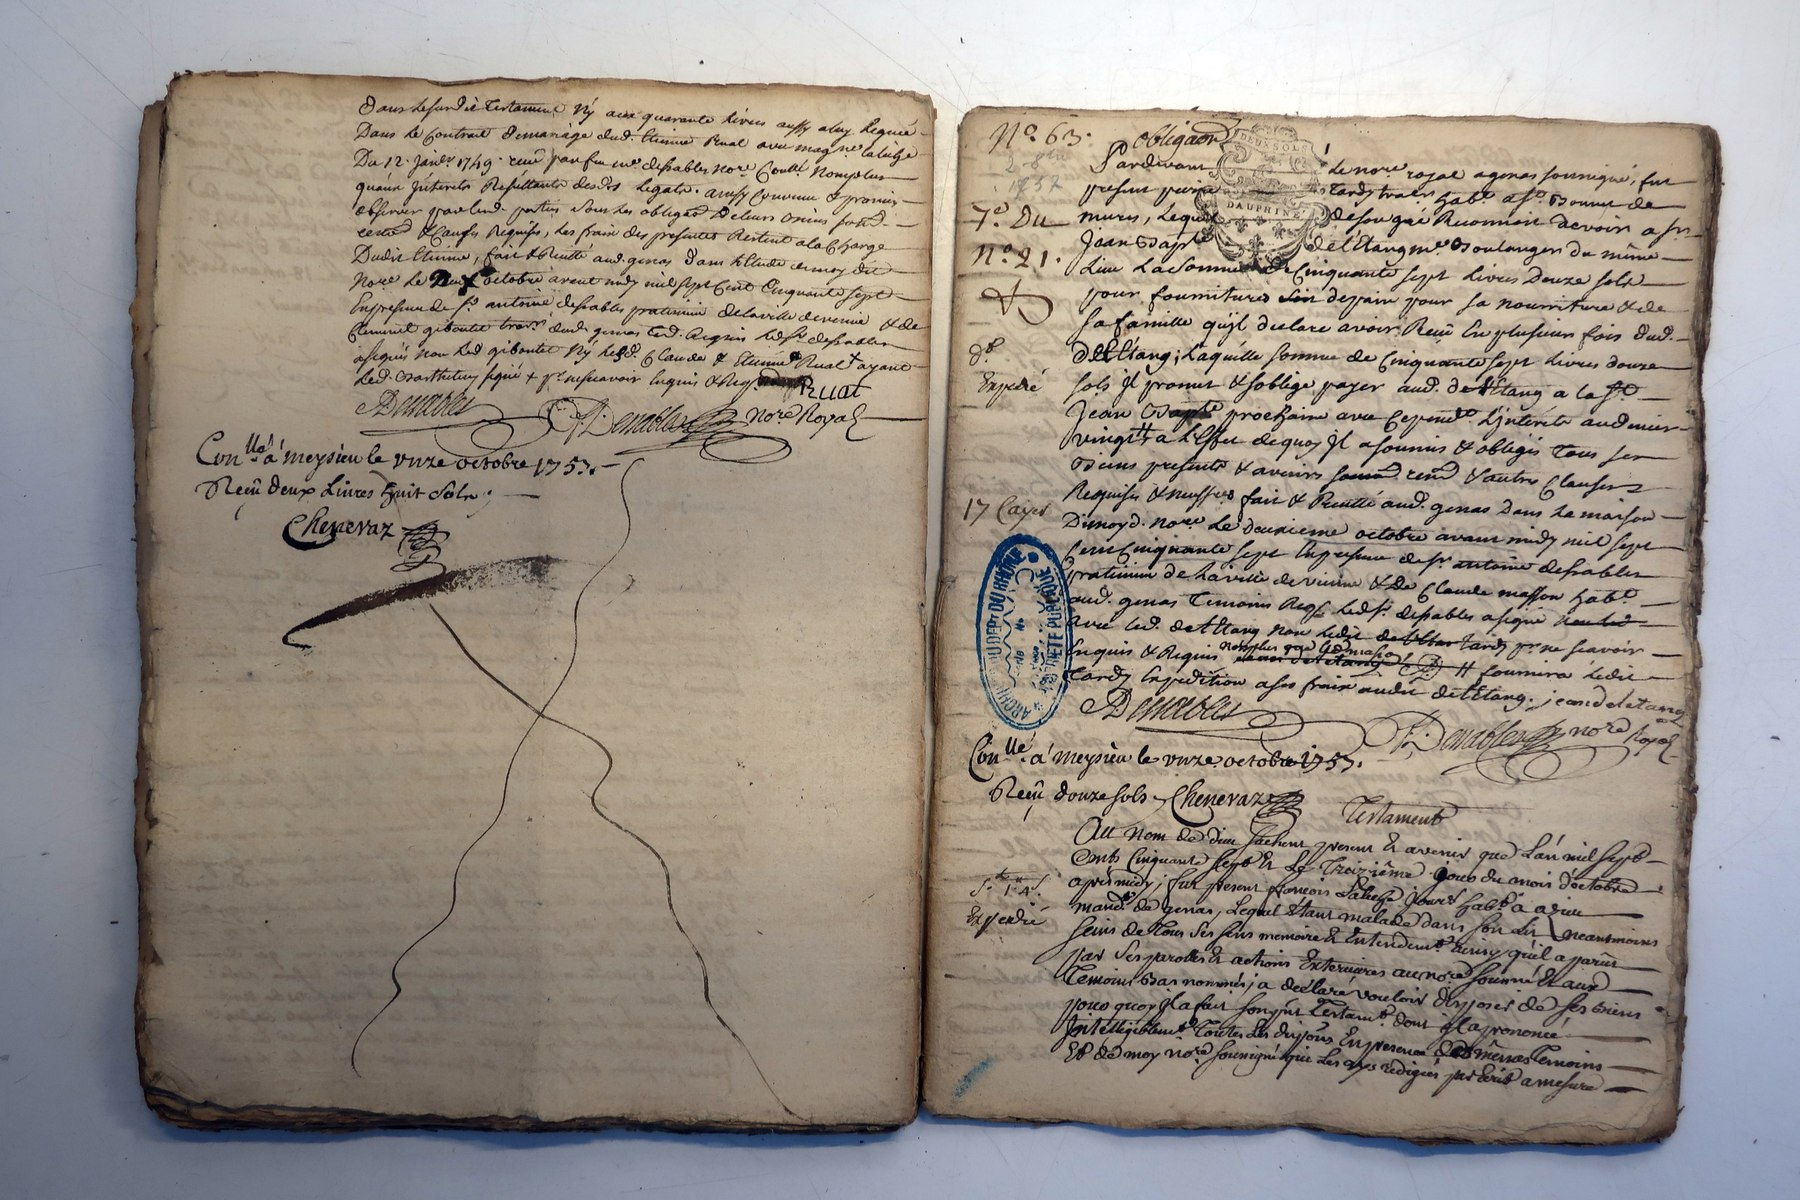 dans le susdit Testament Ny aux quarante livres aussy a luy leguée
Dans le Contrait de mariage dud. Etienne Rual avec mag.ne
Du 12. janv.r 1749. receu par feu me. desSables no.re Nomplus
qu'aux jnterets Resultants desd. Legats. aussy Convenu & promis
observer par lesd. parties sous les obligaõns de leurs Biens
& Clauses Requises, Les frais des presentes Restent a la Charge
Dudit Etienne, fait & Recitté aud. genas dans l'Etude de moy dit
No.re Le octobre avant midy mil sept Cent Cinquante sept
En presence de s.r antoine desSables praticien de la ville de vienne & de
Clement giboutet trav.r dud. genas Led. Requis Led.s.r desSables
a signé non Led. giboutet Ny Lesd. Claude & Etienne Rual + ayant
Led. Barthelemy signé + p.r ne scavoir Enquis & Req.s Rual
Dessables Dessables no.re Royal
Con.llé á meysieu le unze octobre 1757.
Reçû deux Livres huit Sols.
Chenevaz
N.o 63. obligaõn
2 8bre
1757
DEUX SOLS
DAUPHINÉ
Pardevant Le no.re royal a genas soussigné, fut
present pierre Tardy trav.r hab.t a s.t Bonnet de
7.e Du
mures, Lequel de son gré Reconnoit devoir a s.r
N.o 21.
Jean Bapt.e de l'Etang m.e Boulanger du même
Lieu La Somme de Cinquante sept Livres Douze sols
pour fournitures de pain pour sa nourriture & de
sa famille qu'jl declare avoir Reçu En plusieurs fois dud.
d.t
Expedié
DelEtang; Laquelle somme de Cinquante sept Livres douze
sols jl promet & s'oblige payer aud. de l'Etang a la s.t
Jean Bapt.e prochaine avec Cependt. L'jnterets au denier
vingt a L'Effet de quoy jl a soumis & obligés Tous ses
Biens presents & avenirs & autres Clauses
Requises & necess.res fait & Recitté aud. genas Dans La maison
17 Cayer
De moy d. no.re Le deuxieme octobre avant midy mil sept
Cent Cinquante sept En presence de s.r antoine desSables
praticien de la ville de vienne & De Claude masson hab.t
aud. genas Temoins Req.s Led.s.r desSables a signé
avec led. de l'Etang Non Ledit Tardy p.r ne scavoir
Enquis & Requis nomplus que led. masson fournira Ledit
Tardy Expedition a ses frais audit de l'Etang. jean deletang
Dessables Dessables no.re Royal
ARCHIVES DU DEPT DU RHÔNE
PROPRIETE PUBLIQUE
Con.llé á meysieu le unze octobre 1757.
Reçû douze sols. Chenevaz
Testament
Au nom de dieu sachent present Et avenir que L'an mil sept
Cents Cinquante Sept Et Le Treizième jour du mois d'octobre
après midy, fut present françois hab.t a azieu
Expedié
mand.t de genas, Lequel Etant malade dans son Lit Neantmoins
seins de Tous ses sens memoire Et Entendem.t ainsy qu'il a parut
par Ses parolles Et actions Exterieures au no.re soussigné Et aux
Temoins Bas nommés, a déclaré vouloir disposer de ses Biens
pour quoy jl a fait son p.nt Testam.t dont jl a prononcé
Jntelligiblem.t Toutes Les disp.ons En presence des mêmes Temoins
Et de moy no.re soussigné qui Les ay redigées par Ecrit a mesure